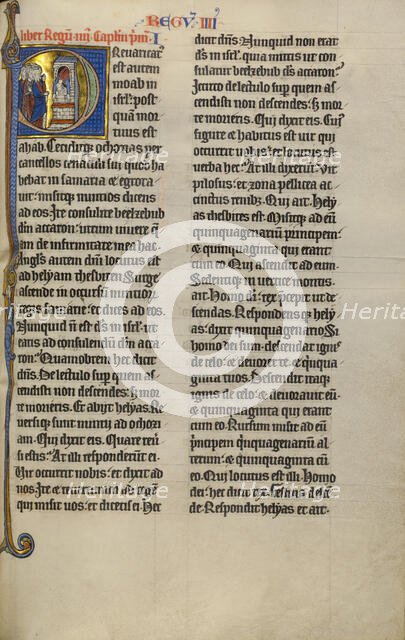 REGV IIII
liber Regum iiij Caplm pm I
Revaricat9
est autem
moab in
isrl post
quam mor
tuus est
ahab. Ceciditq; ochozias per
cancellos cenaculi sui quod ha
bebat in samaria et egrota
uit: misitq; nuntios dicens
ad eos. Ite consulite beelzebub
dm accaron: utrum uiuere q̄
am de infirmitate mea hac.
Angls autem dni locutus est
ad helyam thesbiten. Surge
ascende in occursum nuntioꝝ
regis samarie: et dices ad eos.
Nunquid n̄ est ds in isrl ut
eatis ad consulendū dm acca
ron. Quamobrem hec dicit
dns. De lectulo sup quem as
cendisti non descendes: sʒ mor
te morieris. Et abijt helyas. Re
uersiq; sunt nuntij ad ochozi
am. Qui dixit eis. Quare reu
si estis. At illi responderunt ei.
Vir occurrit nobis: et dyxit ad
nos. Ite et reuertimini ad regē
qui misit uos: et dicetis ei. Hec
dicit dns. Nunquid non erat
ds in isrl: quia mittis ut con
sulatur beelzebub ds accaron.
Iccirco de lectulo sup quem as
cendisti non descendes: sʒ mor
te morieris. Qui dyxit eis. Cui9
figure et habitus est uir qui
occurrit uobis: et locutus est
uerba hec. At illi dyxerūt. Vir
pilosus: et zona pellicea ac
cinctus renibʒ. Qui ayt. Hely
as thesbites est. Misitq; ad eū
quinquagenariū principem:
et quinquaginta qui erant
cum eo. Qui ascendit ad eum.
Sedentiq; in uertice montis:
ait. Homo di: rex precepit ut de
scendas. Respondens q; hely
as: dyxit quinquagenario. Si
homo dei sum: descendat ignis
de celo: et deuoret te et quiqua
ginta tuos. Descendit itaq;
ignis de celo: et deuorauit eū
et quinquaginta qui erant
cum eo. Rursum misit ad eum
pncipem quinquagenariū al
terum: et quinquaginta cū
eo. Qui locutus est illi. Homo
dei: hec dicit rex. Festina descē
de. Respondit helyas et ait.
Heritage
Heritage
Heritage
Heritage
Heritage
Heritage